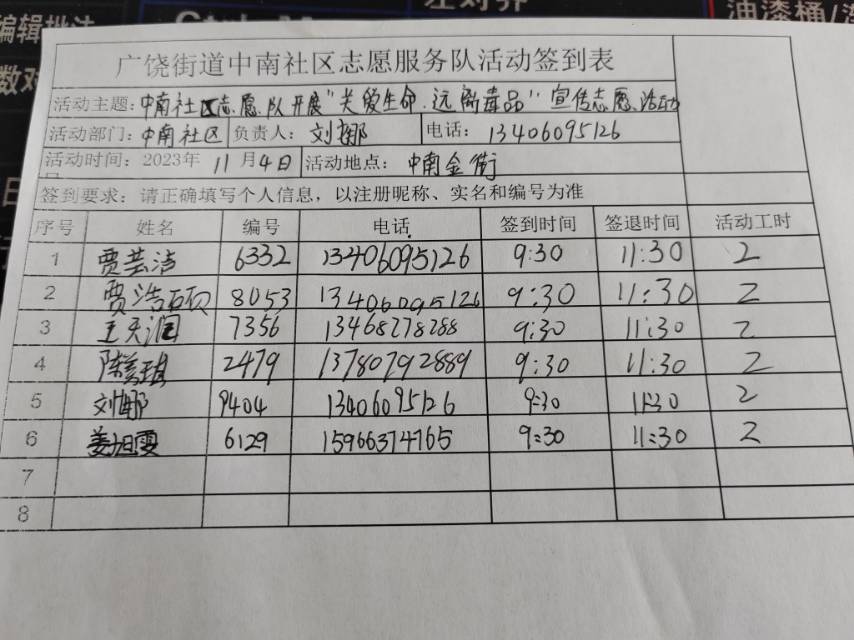 编辑批注
左对齐
油漆桶/
数对
广饶街道中南社区志愿服务队活动签到表
活动主题：中南社区志愿队开展"关爱生命.远离毒品"宣传志愿活动
活动部门：中南社区 负责人：刘娜 电话：13406095126
活动时间：2023年 11 月 4 日 活动地点：中南金街
签到要求：请正确填写个人信息，以注册昵称、实名和编号为准
序号 姓名 编号 电话 签到时间 签退时间 活动工时
1 贾芸洁 6332 13406095126 9:30 11:30 2
2 贾浩硕 8053 13406095126 9:30 11:30 2
3 王天润 7356 13468278288 9:30 11:30 2
4 2479 13780792889 9:30 11:30 2
5 刘娜 9404 13406095126 9:30 11:30 2
6 姜旭雯 6129 15966374765 9:30 11:30 2
7
8